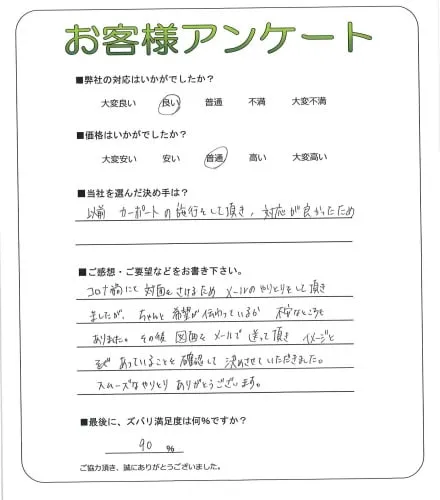 お客様アンケート
■弊社の対応はいかがでしたか？
大変良い 良い 普通 不満 大変不満
■価格はいかがでしたか？
大変安い 安い 普通 高い 大変高い
■当社を選んだ決め手は？
以前 カーポートの施行をして頂き、対応が良かったため
■ご感想・ご要望などをお書き下さい。
コロナ禍にて 対面をさけるため メールのやりとりをして頂き
ましたが、ちゃんと希望が伝わっているか 不安なところも
ありました。その後 図面をメールで 送って頂き イメージと
あっていることを 確認して 決めさせていただきました。
スムーズなやりとり ありがとうございます。
■最後に、ズバリ満足度は何%ですか？
90 %
ご協力頂き、誠にありがとうございました。